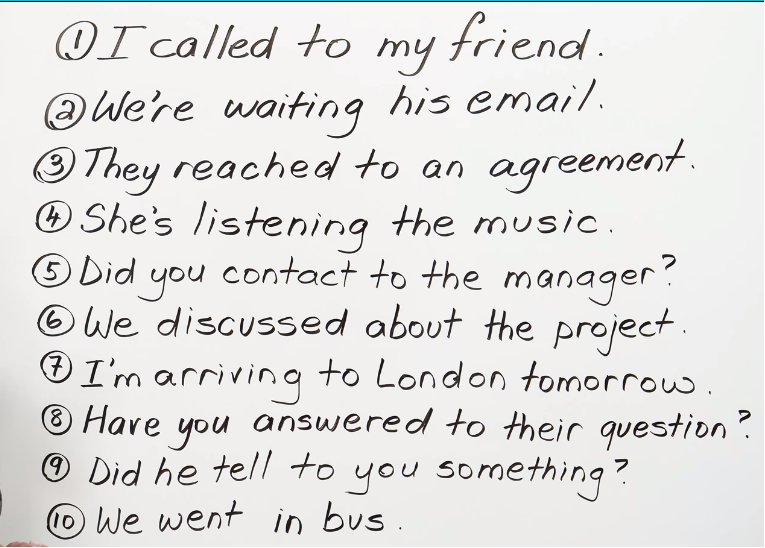 ① I called to my friend.
② We're waiting his email.
③ They reached to an agreement.
④ She's listening the music.
⑤ Did you contact to the manager?
⑥ We discussed about the project.
⑦ I'm arriving to London tomorrow.
⑧ Have you answered to their question?
⑨ Did he tell to you something?
⑩ We went in bus.